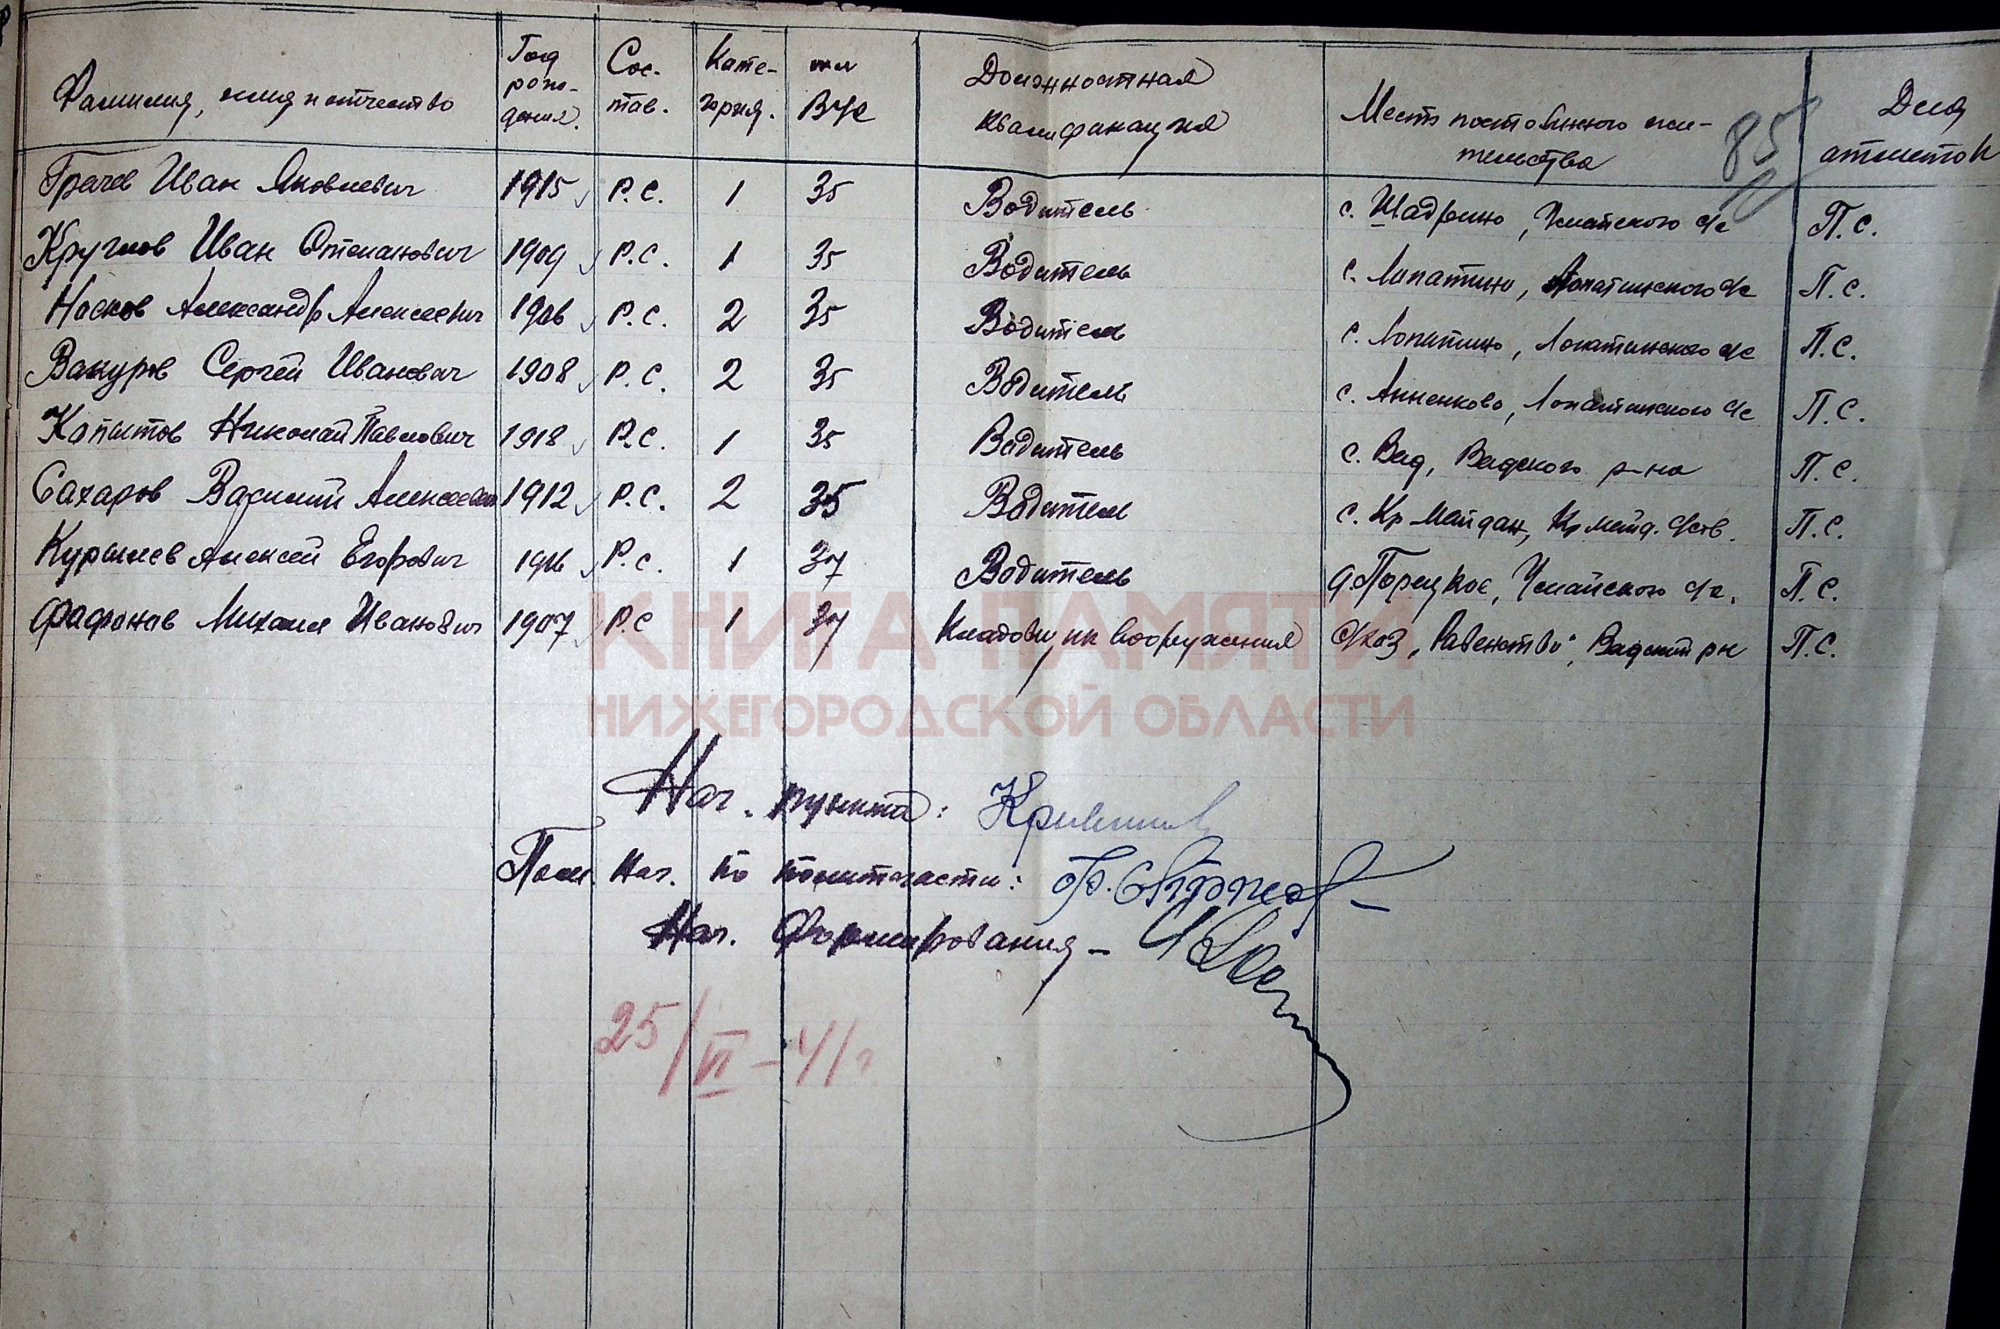 Фамилия, имя и отчество Год рождения. Сос-тав. Кате-гория. № ВУС Должностная квалификация Место постоянного жи-тельства Для отметок
85
Грачев Иван Яковлевич 1915 Р.С. 1 35 Водитель с. Шадрино, Умайского с/с П.С.
Круглов Иван Степанович 1909 Р.С. 1 35 Водитель с. Лопатино, Лопатинского с/с П.С.
Носков Александр Алексеевич 1906 Р.С. 2 35 Водитель с. Лопатино, Лопатинского с/с П.С.
Вакуров Сергей Иванович 1908 Р.С. 2 35 Водитель с. Анненково, Лопатинского с/с П.С.
Капытов Николай Павлович 1918 Р.С. 1 35 Водитель с. Вад, Вадского р-на П.С.
Сахаров Василий Алексеевич 1912 Р.С. 2 35 Водитель с. Кр Майдан, Кр майд. с/сов. П.С.
Курылев Алексей Егорович 1916 Р.С. 1 37 Водитель д. Порецкое, Умайского с/с. П.С.
Фафонов Михаил Иванович 1907 Р.С 1 37 Кладовщик вооружения с/хоз „Равенство", Вадский рн П.С.
КНИГА ПАМЯТИ
НИЖЕГОРОДСКОЙ ОБЛАСТИ
Нач. пункта:
Пом. Нач. по политчасти:
Нач. Формирования –
25/VI – 41 г